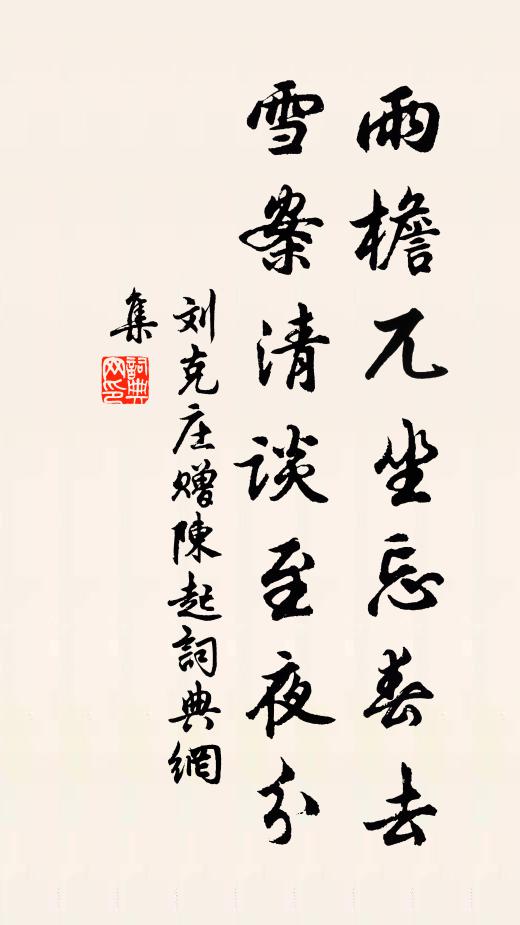 雨檐兀坐忘春去
雪案清談至夜分
刘克庄赠陳起詞典網
集
詞典
网印